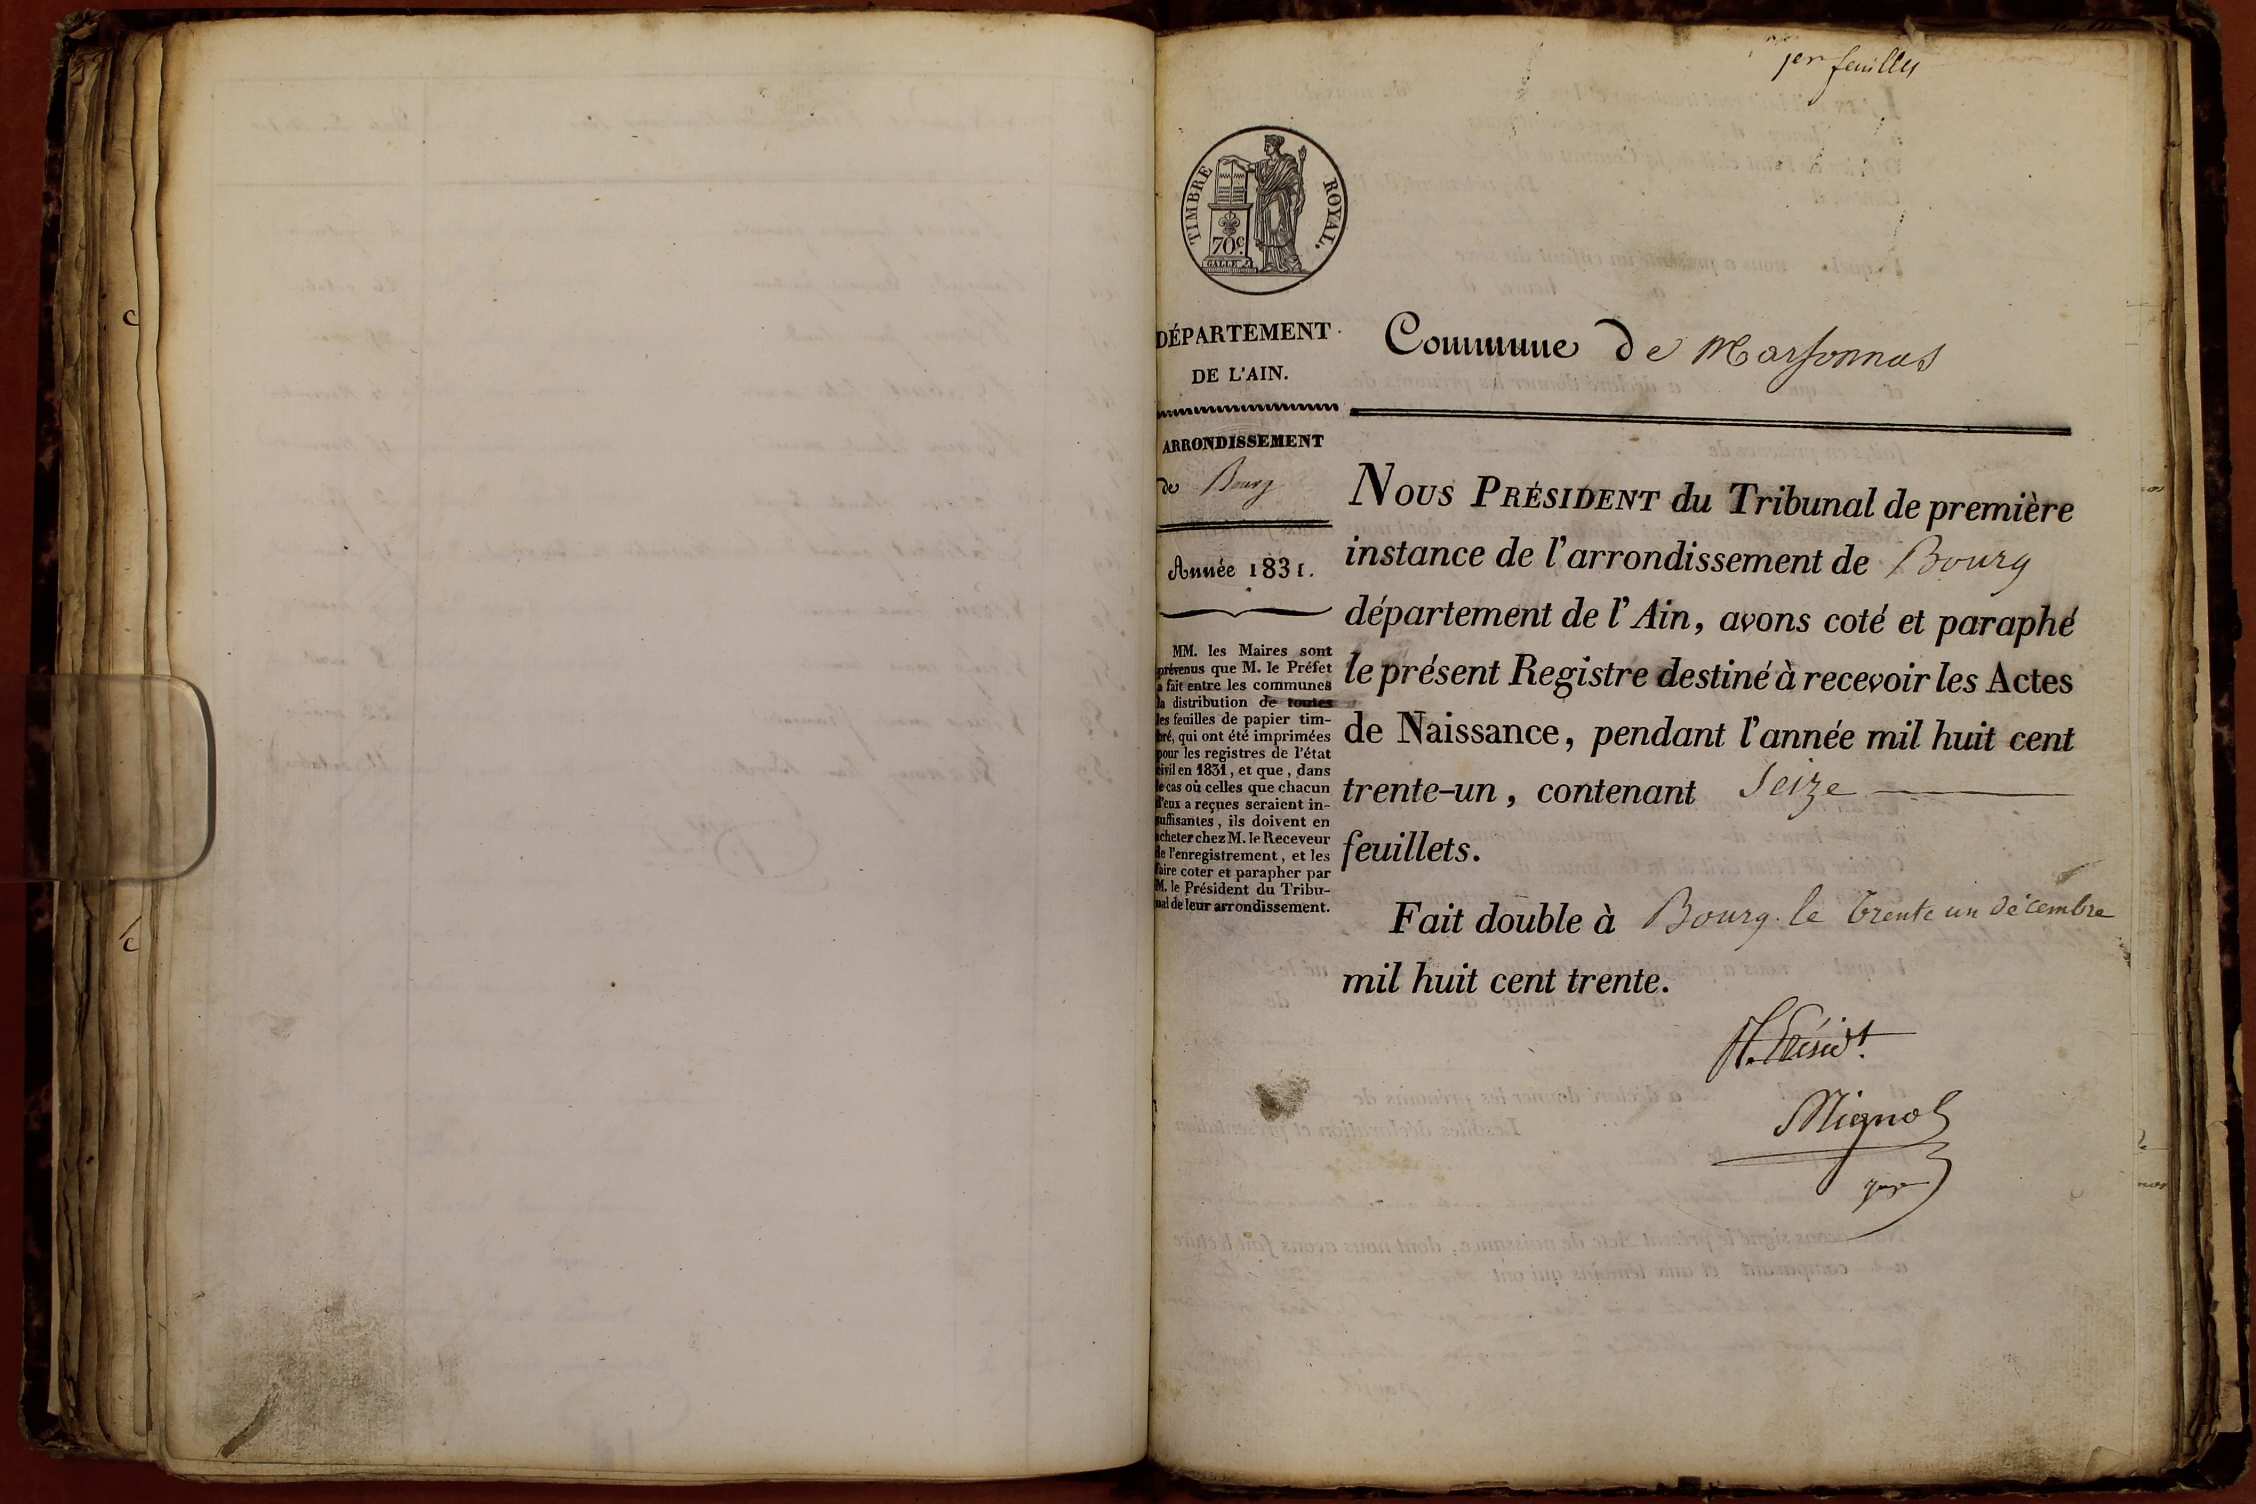 1er feuillet
TIMBRE ROYAL.
70 c.
GALLE
DÉPARTEMENT
DE L'AIN.
ARRONDISSEMENT
de Bourg
Année 1831.
MM. les Maires sont
prévenus que M. le Préfet
a fait entre les communes
la distribution de toutes
les feuilles de papier tim-
bré, qui ont été imprimées
pour les registres de l'état
civil en 1831, et que, dans
le cas où celles que chacun
d'eux a reçues seraient in-
suffisantes, ils doivent en
acheter chez M. le Receveur
de l'enregistrement, et les
faire coter et parapher par
M. le Président du Tribu-
nal de leur arrondissement.
Commune de Marsonnas
NOUS PRÉSIDENT du Tribunal de première
instance de l'arrondissement de Bourg
département de l'Ain, avons coté et paraphé
le présent Registre destiné à recevoir les Actes
de Naissance, pendant l'année mil huit cent
trente-un, contenant Seize
feuillets.
Fait double à Bourg le trente un décembre
mil huit cent trente.
Présidt.